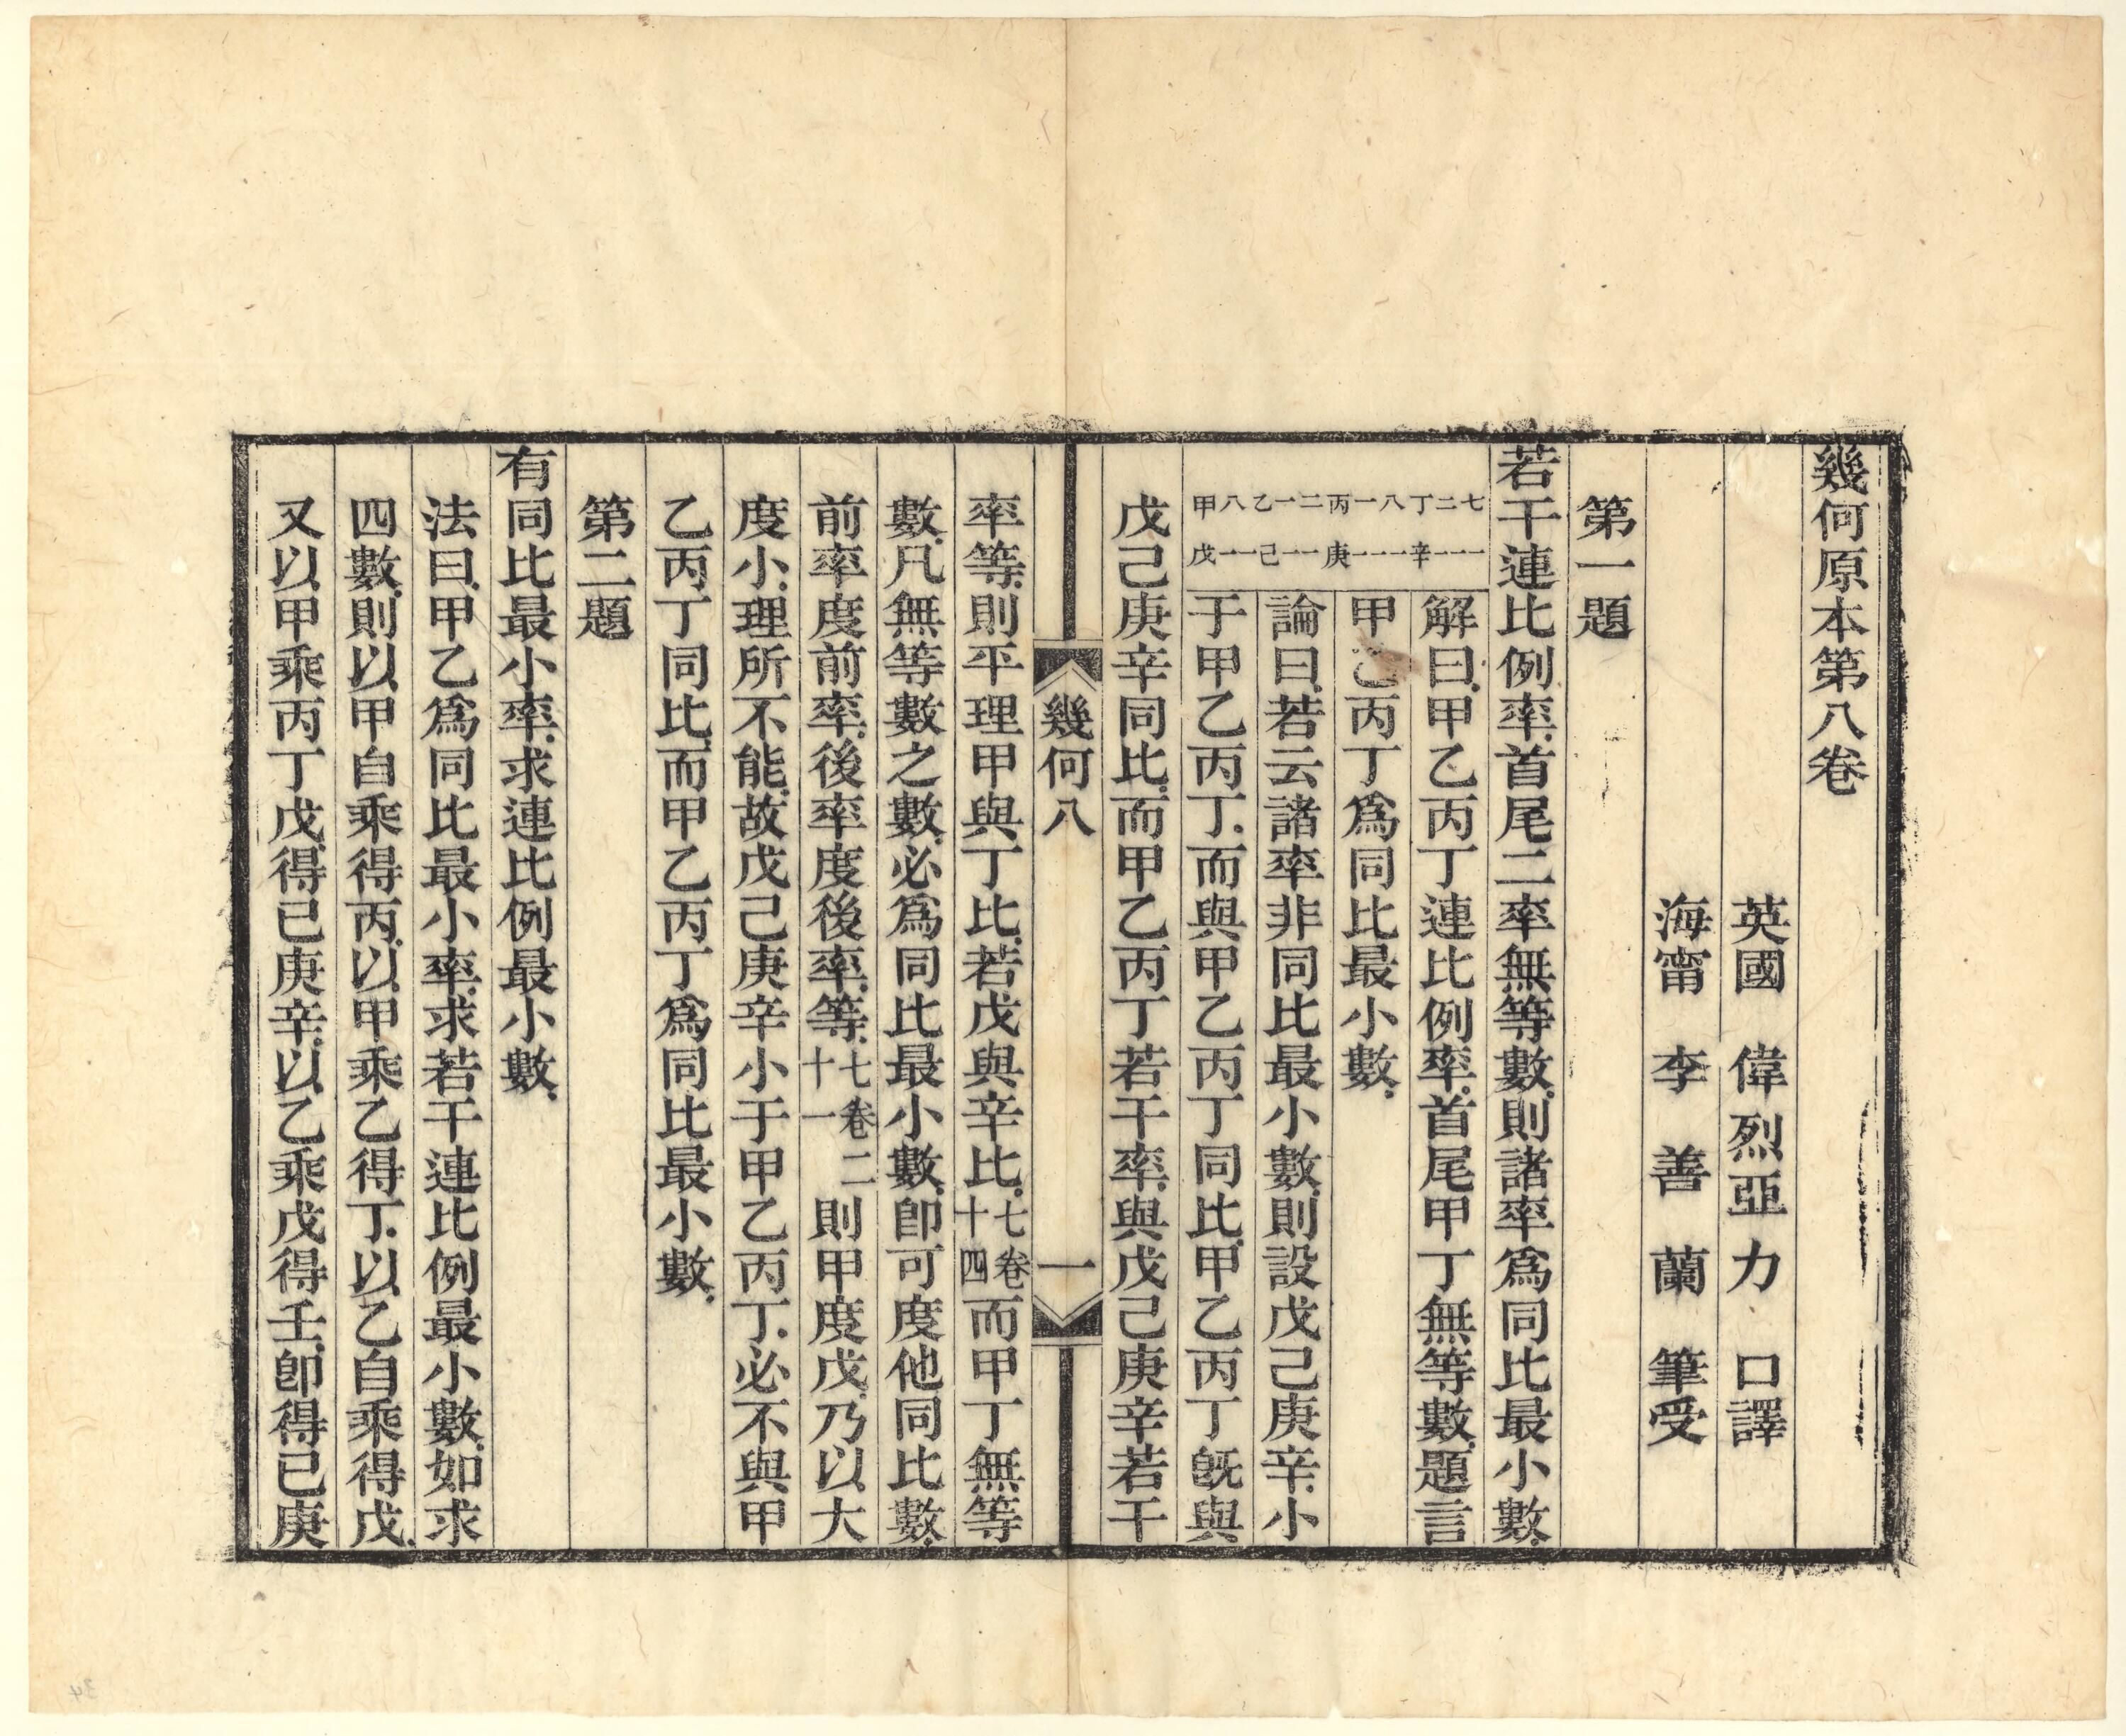 幾何原本第八卷
英國 偉烈亞力 口譯
海甯 李善蘭 筆受
第一題
若干連比例率首尾二率無等數則諸率爲同比最小數
解曰甲乙丙丁連比例率首尾甲丁無等數題言
甲乙丙丁爲同比最小數
論曰若云諸率非同比最小數則設戊己庚辛小
于甲乙丙丁而與甲乙丙丁同比甲乙丙丁旣與
甲八乙一二丙一八丁二七
戊一一己一一庚一一一辛一一一
戊己庚辛同比而甲乙丙丁若干率與戊己庚辛若干
幾何八
一
率等則平理甲與丁比若戊與辛比七卷十四而甲丁無等
數凡無等數之數必爲同比最小數卽可度他同比數
前率度前率後率度後率等七卷二十一則甲度戊乃以大
度小理所不能故戊己庚辛小于甲乙丙丁必不與甲
乙丙丁同比而甲乙丙丁爲同比最小數
第二題
有同比最小率求連比例最小數
法曰甲乙爲同比最小率求若干連比例最小數如求
四數則以甲自乘得丙以甲乘乙得丁以乙自乘得戊
又以甲乘丙丁戊得已庚辛以乙乘戊得壬卽得已庚
34